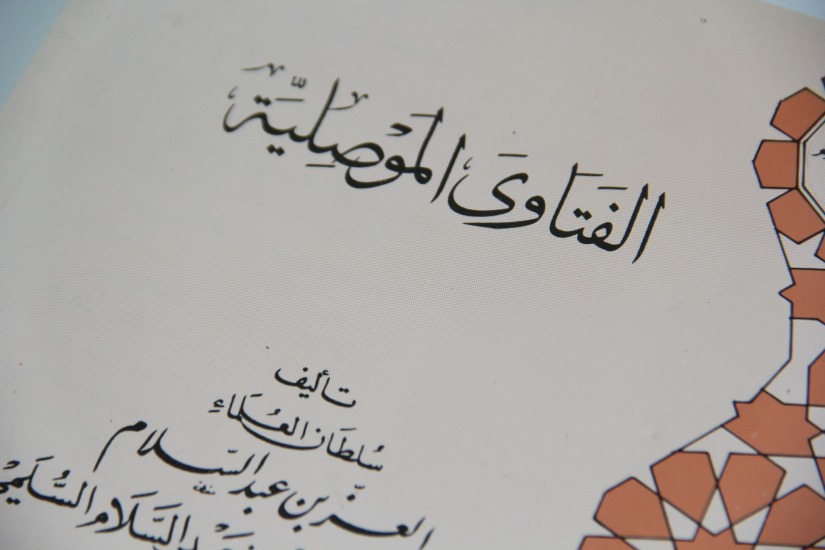 الفَتَاوَى المَوْصِلِيَّة
تأليف
سُلطَان العُلَمَاء
العِزّ بن عبد السّلام
السَّلَام السُّلَمي